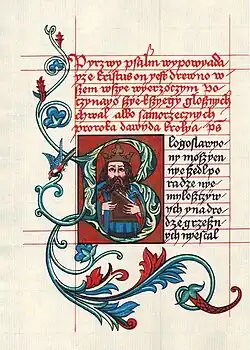 Pyrzwy psalm wypowyada
yze kristus on yest drewno w
szem wszye wyerzøczym po
czynayø szye kszyøgy gloßnych
chwal albo samorzecznych
proroka dawyda krolya ps
Blogoslawyo
ny møszyen
nye szedl po
radze nye
mylosczyw
ych y na dro
dze grzesz
nych nye stal